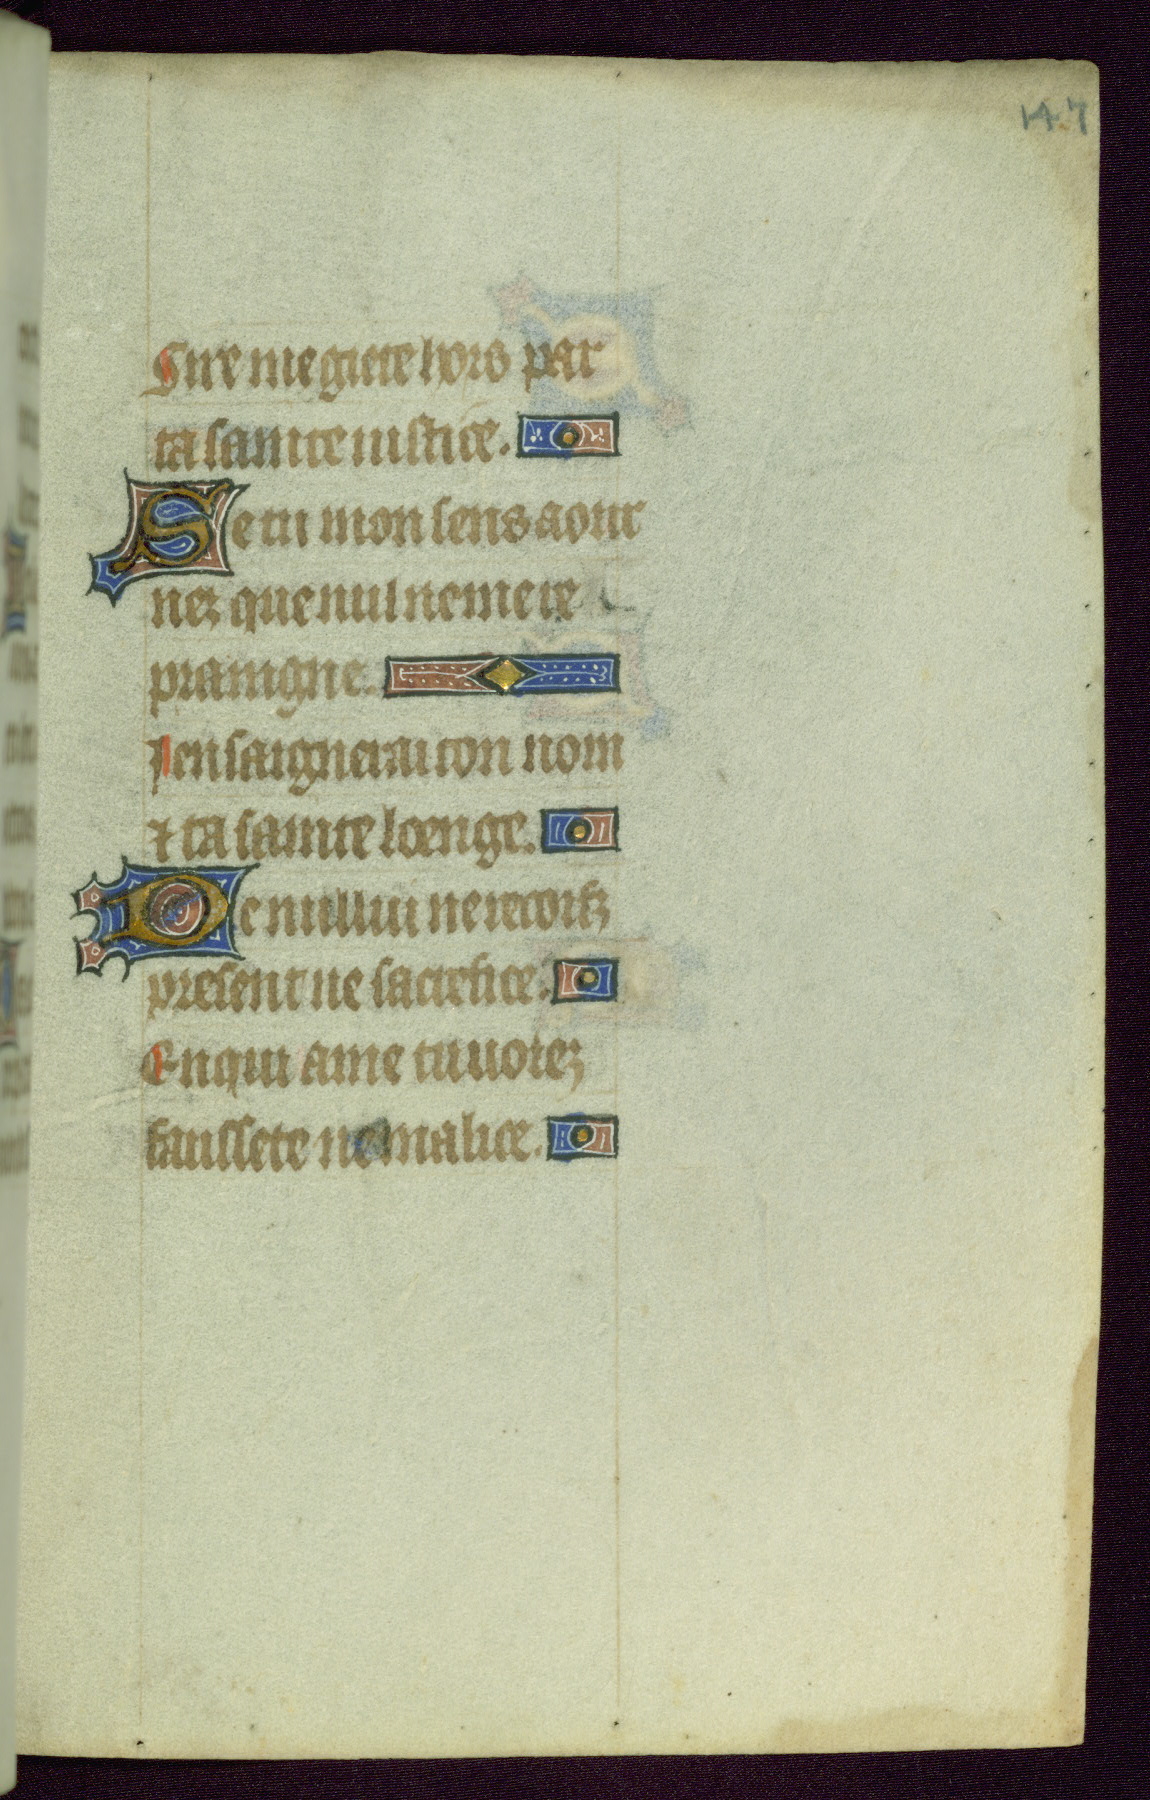 147
Sire me giete hors par
ta sainte iustice.
Se tu mon sens aour
nez que nul ne me re
praingne.
Jensaignerai ton nom
⁊ ta sainte loenge.
De nullui ne recoif
present ne sacrefice.
En qui ame tu uoiez
faussete ne malice.